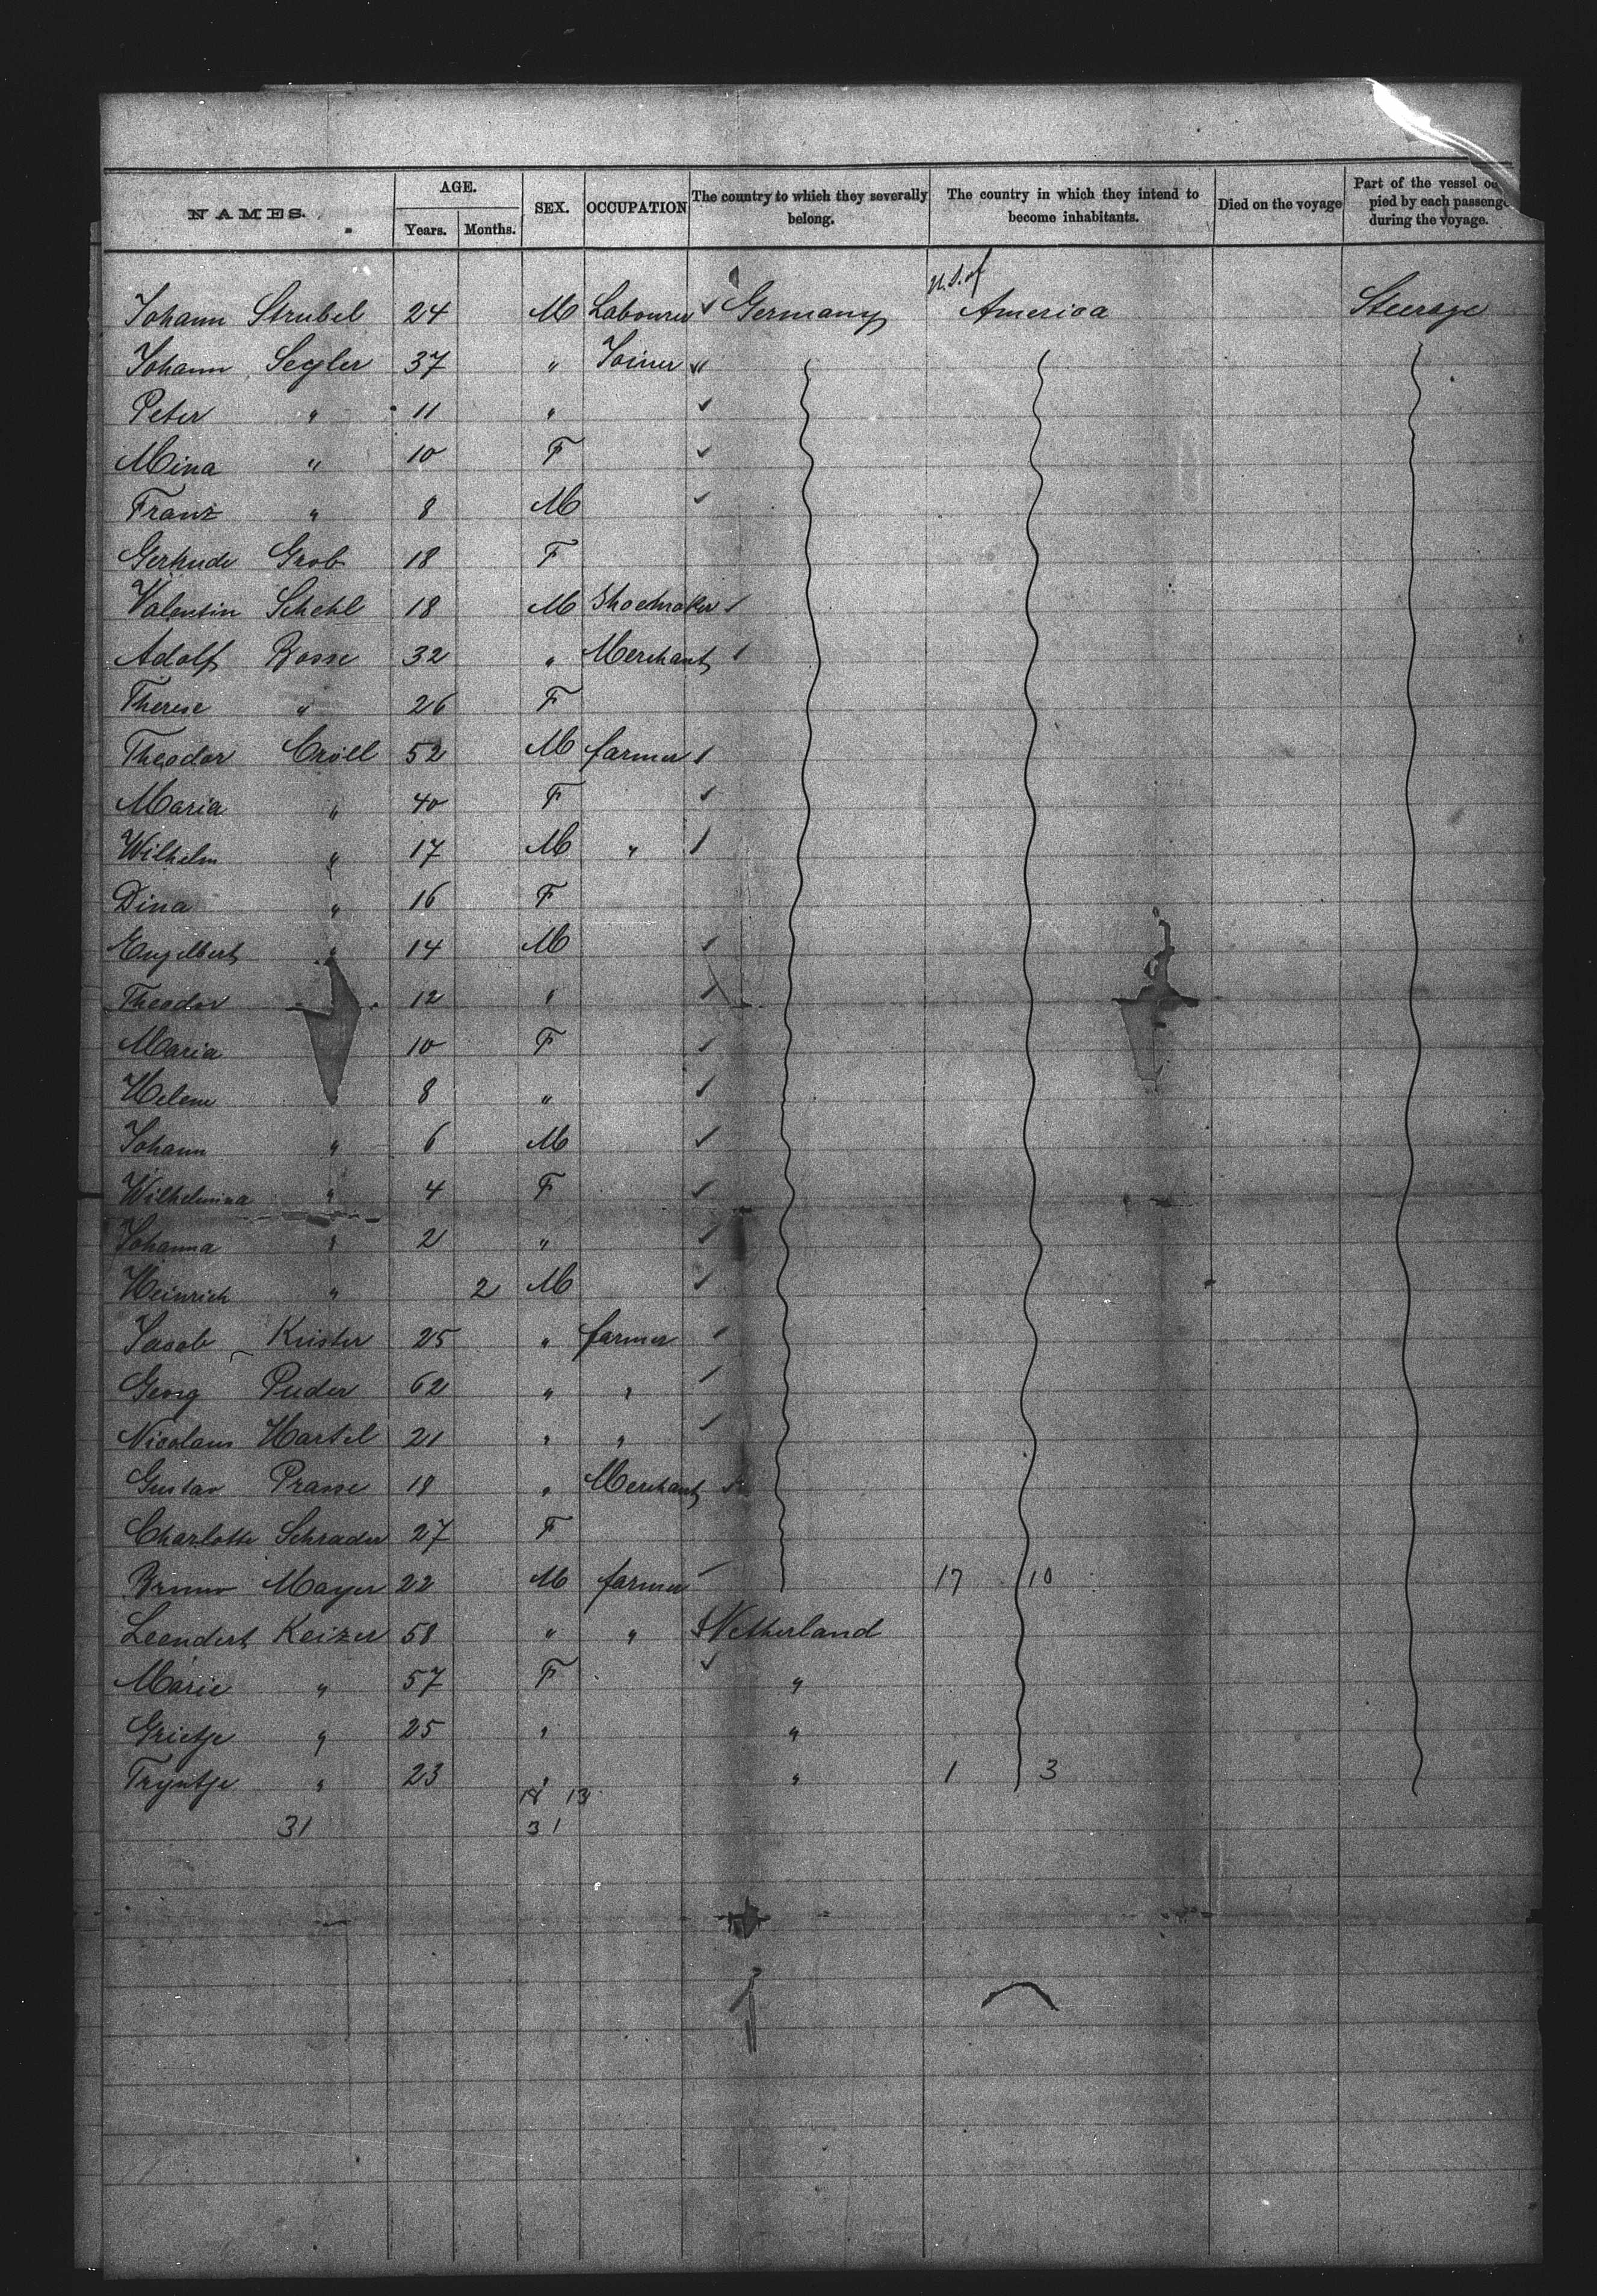 NAMES. AGE. SEX. OCCUPATION The country to which they severally belong. The country in which they intend to become inhabitants. Died on the voyage Part of the vessel pied by each during the voyage.
Years. Months.
U.S. of
Johann Strubel 24 M Labourer Germany America Steerage
Johann Segler 37 " Joiner "
Peter " 11 "
Mina " 10 F
Franz " 8 M
Gertrude Grob 18 F
Valentin Schehl 18 M Shoemaker
Adolf Bosse 32 " Merchant
Therese " 26 F
Theodor Cröll 52 M farmer
Maria " 40 F
Wilhelm " 17 M "
Dina " 16 F
Engelbert " 14 M
Theodor 12 "
Maria 10 F
Helene 8 "
Johann " 6 M
Wilhelmina " 4 F
Johanna " 2 "
Heinrich " 2 M
Jacob Krister 25 " farmer
Georg Puder 62 " "
Nicolaus Hartel 21 " "
Gustav Prasse 18 " Merchant
Charlotte Schrader 27 F
Bruno Mayer 22 M farmer 17 10
Leendert Keizer 58 " " Netherland
Marie " 57 F "
Grietje " 25 " "
Tryntje " 23 " " 1 3
18 13
31 31